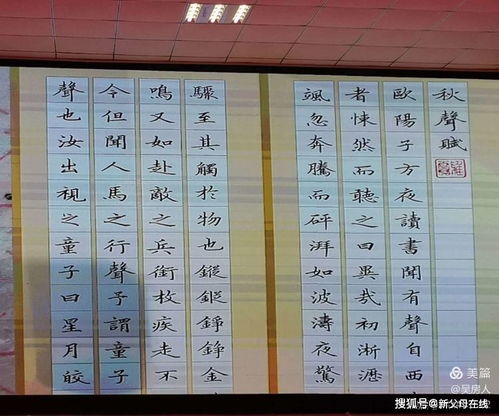 秋聲賦
歐陽子方夜讀書聞有聲自西
者悚然而聽之曰異哉初淅瀝
颯忽奔騰而砰湃如波濤夜驚
驟至其觸於物也鏦鏦錚錚金
鳴又如赴敵之兵銜枚疾走不
令但聞人馬之行聲予謂童子
聲也汝出視之童子曰星月皎
美篇
@吴房人
搜狐号@新父母在线